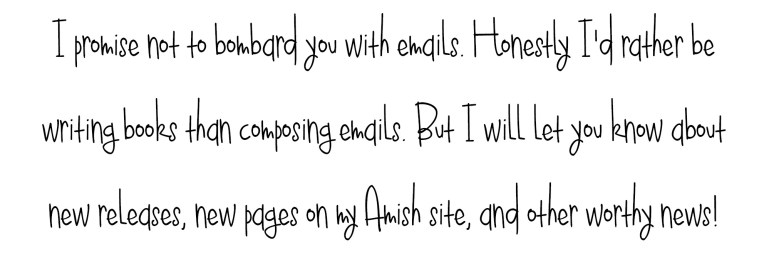 I promise not to bombard you with emails. Honestly I'd rather be
writing books than composing emails. But I will let you know about
new releases, new pages on my Amish site, and other worthy news!